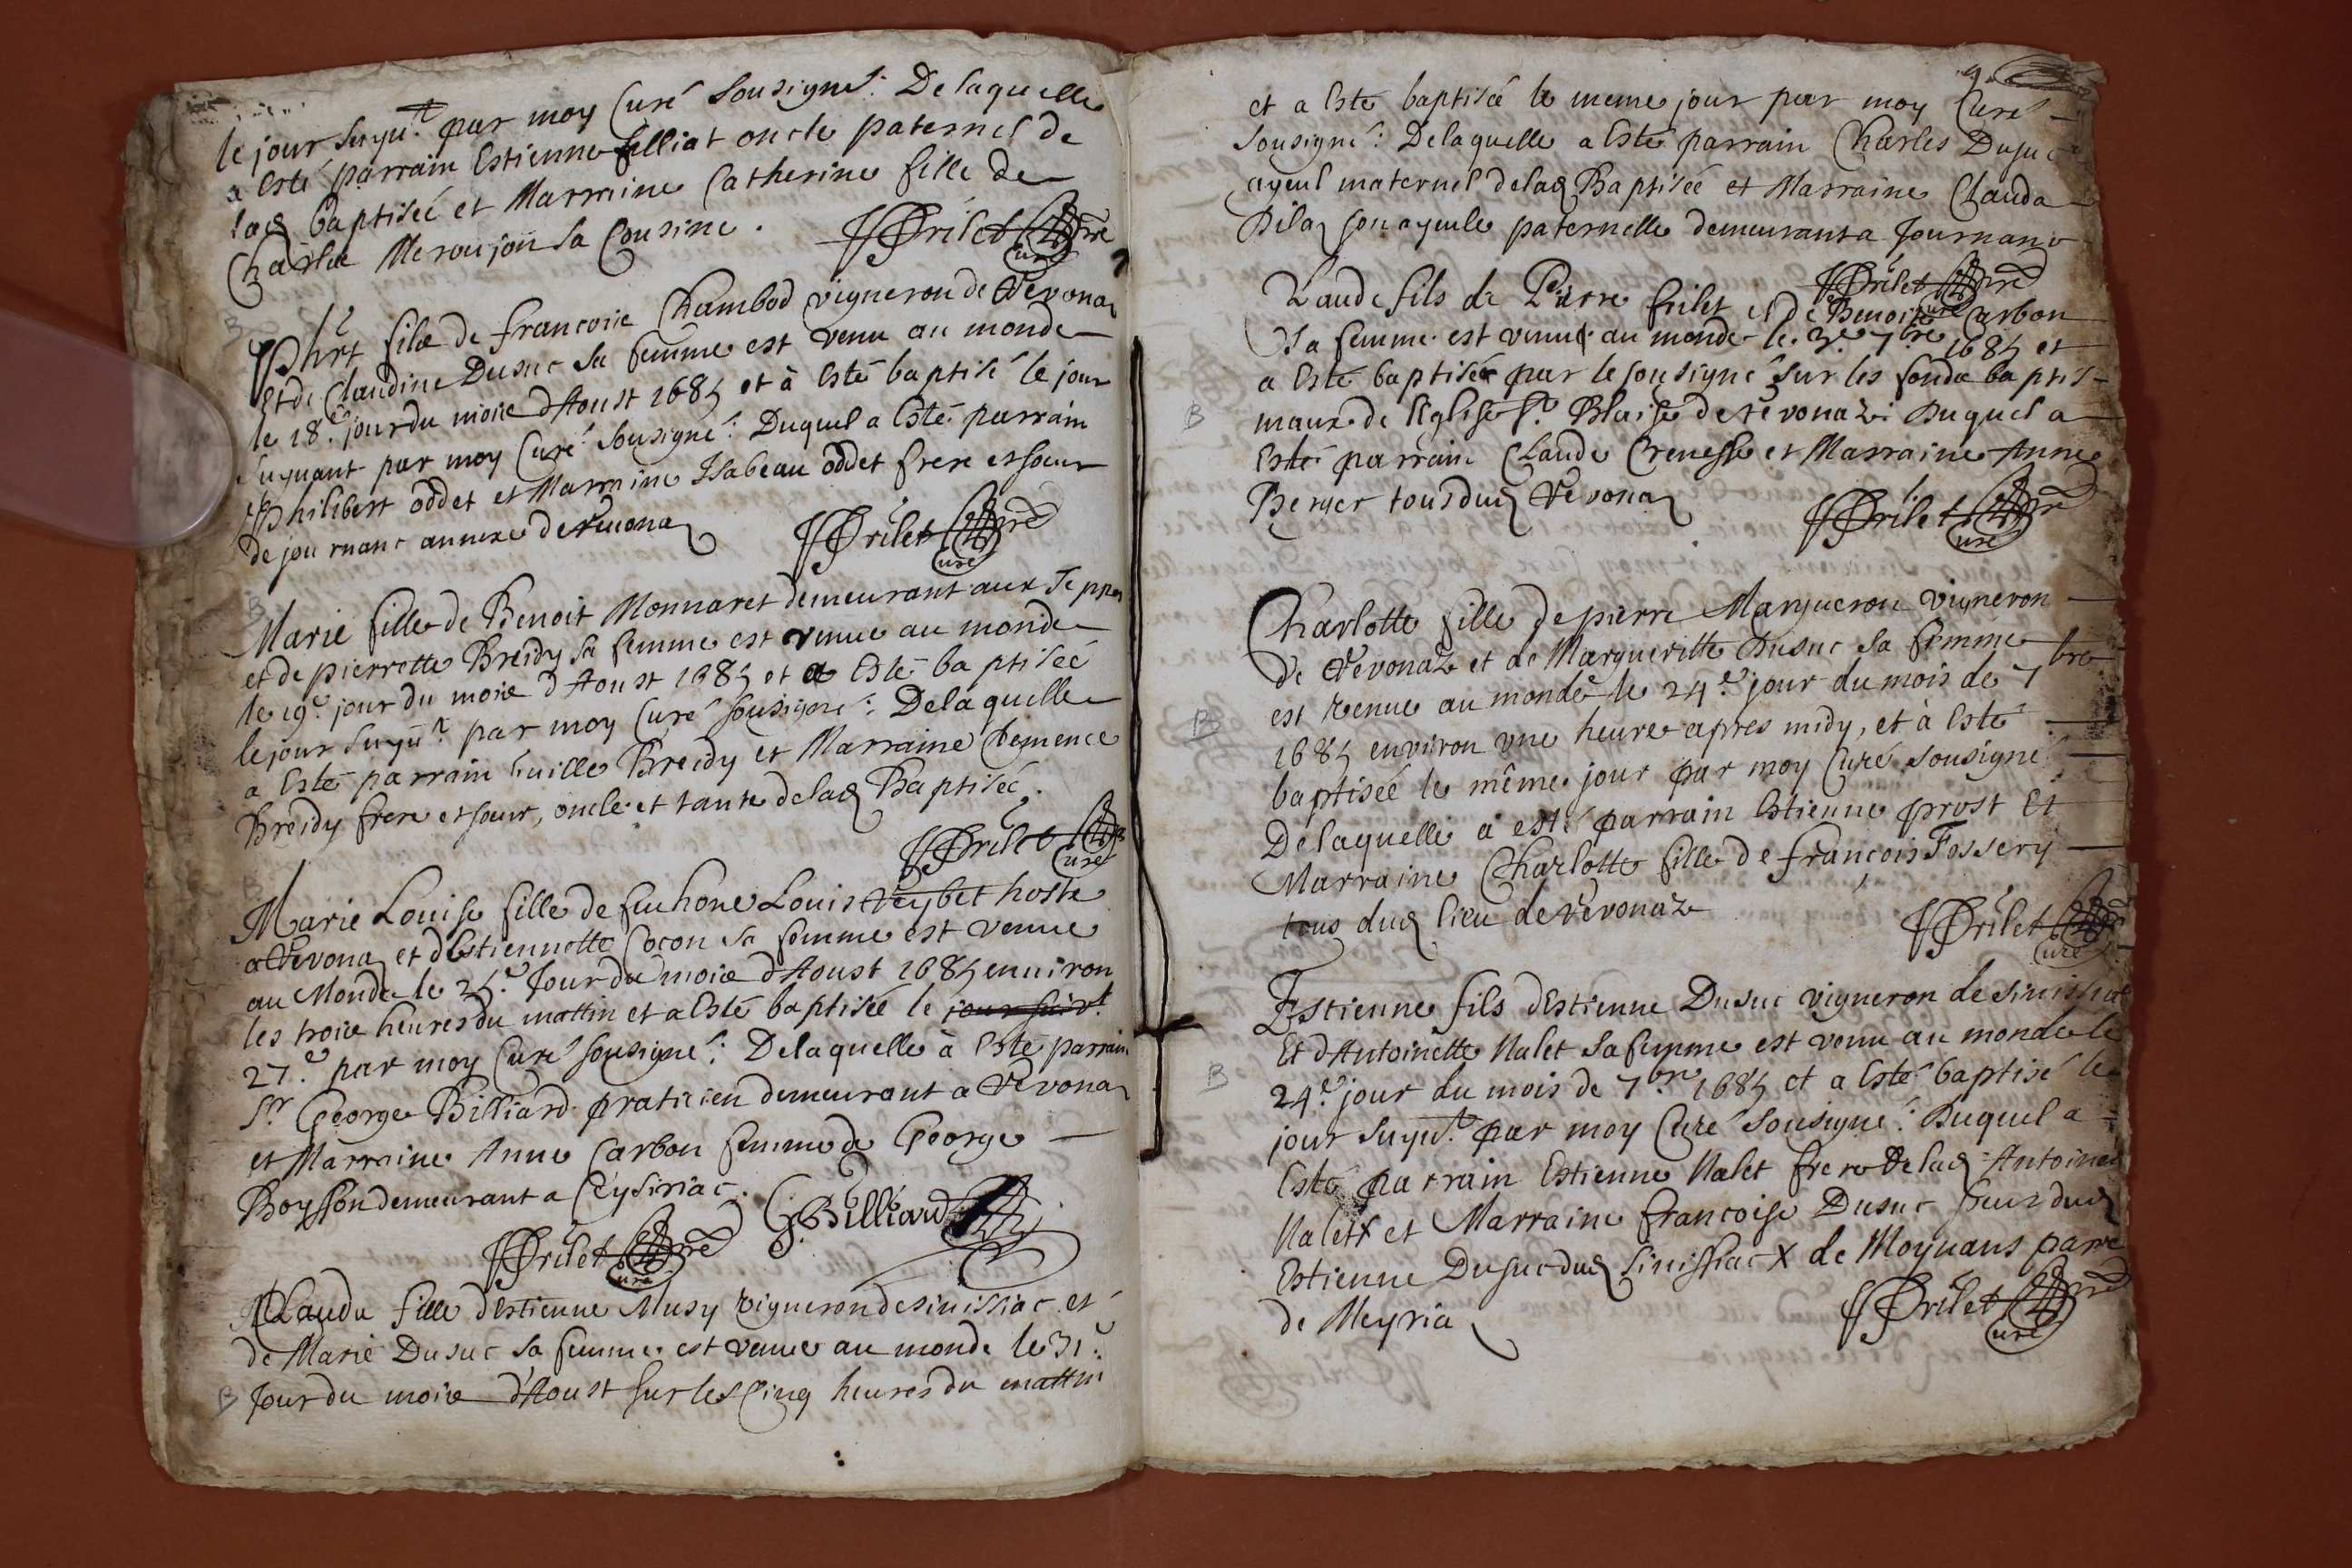 le jour suyu.t par moy Curé sousigné: De laquelle
a esté parrain Estienne felliat oncle paternel de
lad baptiseé et Marraine Catherine fille de
Charle Meroujon sa Cousine.
JFrilet pre
Curé
Phrt fils de francois Chambod vigneron de Revona
Et de Claudine Dusuc sa femme est venu au monde
le 18.e jour du mois d'Aoust 1685 et à esté baptisé le jour
suyuant par moy Curé sousigné: Duquel a esté parrain
Philibert oddet et Marraine Isabeau oddet frere et soeur
de journanc annexe de Reuona
JFrilet pre
Curé
Marie fille de Benoit Monnaret demeurant aux
et de pierrette Breidy sa femme est venue au monde
le 19.e jour du mois d'Aoust 1685 et a Esté baptiseé
le jour suyu.t par moy Curé sousigné: De laquelle
a Esté parrain Guille Breidy et Marraine Clemence
Breidy frere et soeur, oncle et tante delad Baptiseé.
JFrilet pre
Curé
Marie Louise fille de feu hone Louis Reybet hoste
a Revona et d'Estiennette Cocon sa femme est venue
au Monde le 25.e Jour du mois d'Aoust 1685 enuiron
les trois heures du mattin et a esté baptiseé le jour suiv.t
27.e par moy Curé sousigné: De laquelle à Esté parrain
Sr. George Billiard praticien demeurant a Revona
et Marraine Anne Carbon femme de George
Boysson demeurant a Ceysiriac.
G. Billiard
JFrilet pre
Curé
Clauda fille d'Estienne Musy vigneron de sinissiac et
de Marie Dusuc sa femme est venue au monde le 31.e
Jour du mois d'Aoust sur les Cinq heures du mattin
9
et a Esté baptiseé le meme jour par moy Curé
sousigné: De laquelle a Esté parrain Charles Dusuc
ayeul maternel delad Baptiseé et Marraine Clauda
Pila son ayeule paternelle demeurant a Journanc
JFrilet pre
Curé
Claude fils de Pierre frilet et de Benoite Carbon
sa femme est venu au monde le 3.e 7bre 1685 et
a Esté baptisé par le sousigné sur les fonds baptis-
maux de l'Eglise St. Blaise de revonaz: Duquel a
Esté parrain Claude Crenesse et Marraine Anne
Berger tous dud Revona
JFrilet pre
Curé
Charlotte fille de pierre Marqueron vigneron
de Revonaz et de Margueritte Dusuc sa femme
est venue au monde le 24.e jour du mois de 7bre
1685 environ vne heure apres midy, et à Esté
baptiseé le même jour par moy Curé sousigné
De laquelle a esté parrain Estienne prost Et
Marraine Charlotte fille de françois Fossery
tous dud lieu de revonaz
JFrilet pre
Curé
Estienne fils d'Estienne Dusuc vigneron de sinissiat
Et d'Antoinette Nalet sa femme est venu au monde le
24.e jour du mois de 7bre 1685 et a Esté baptisé le
jour suyu.t par moy Curé sousigné: Duquel a
Esté parrain Estienne Nalet frere delad Antoinette
Nalet X et Marraine francoise Dusuc soeur dud
Estienne Dusuc dud sinissiac X de Moynans parre
de Meyria
JFrilet pre
Curé